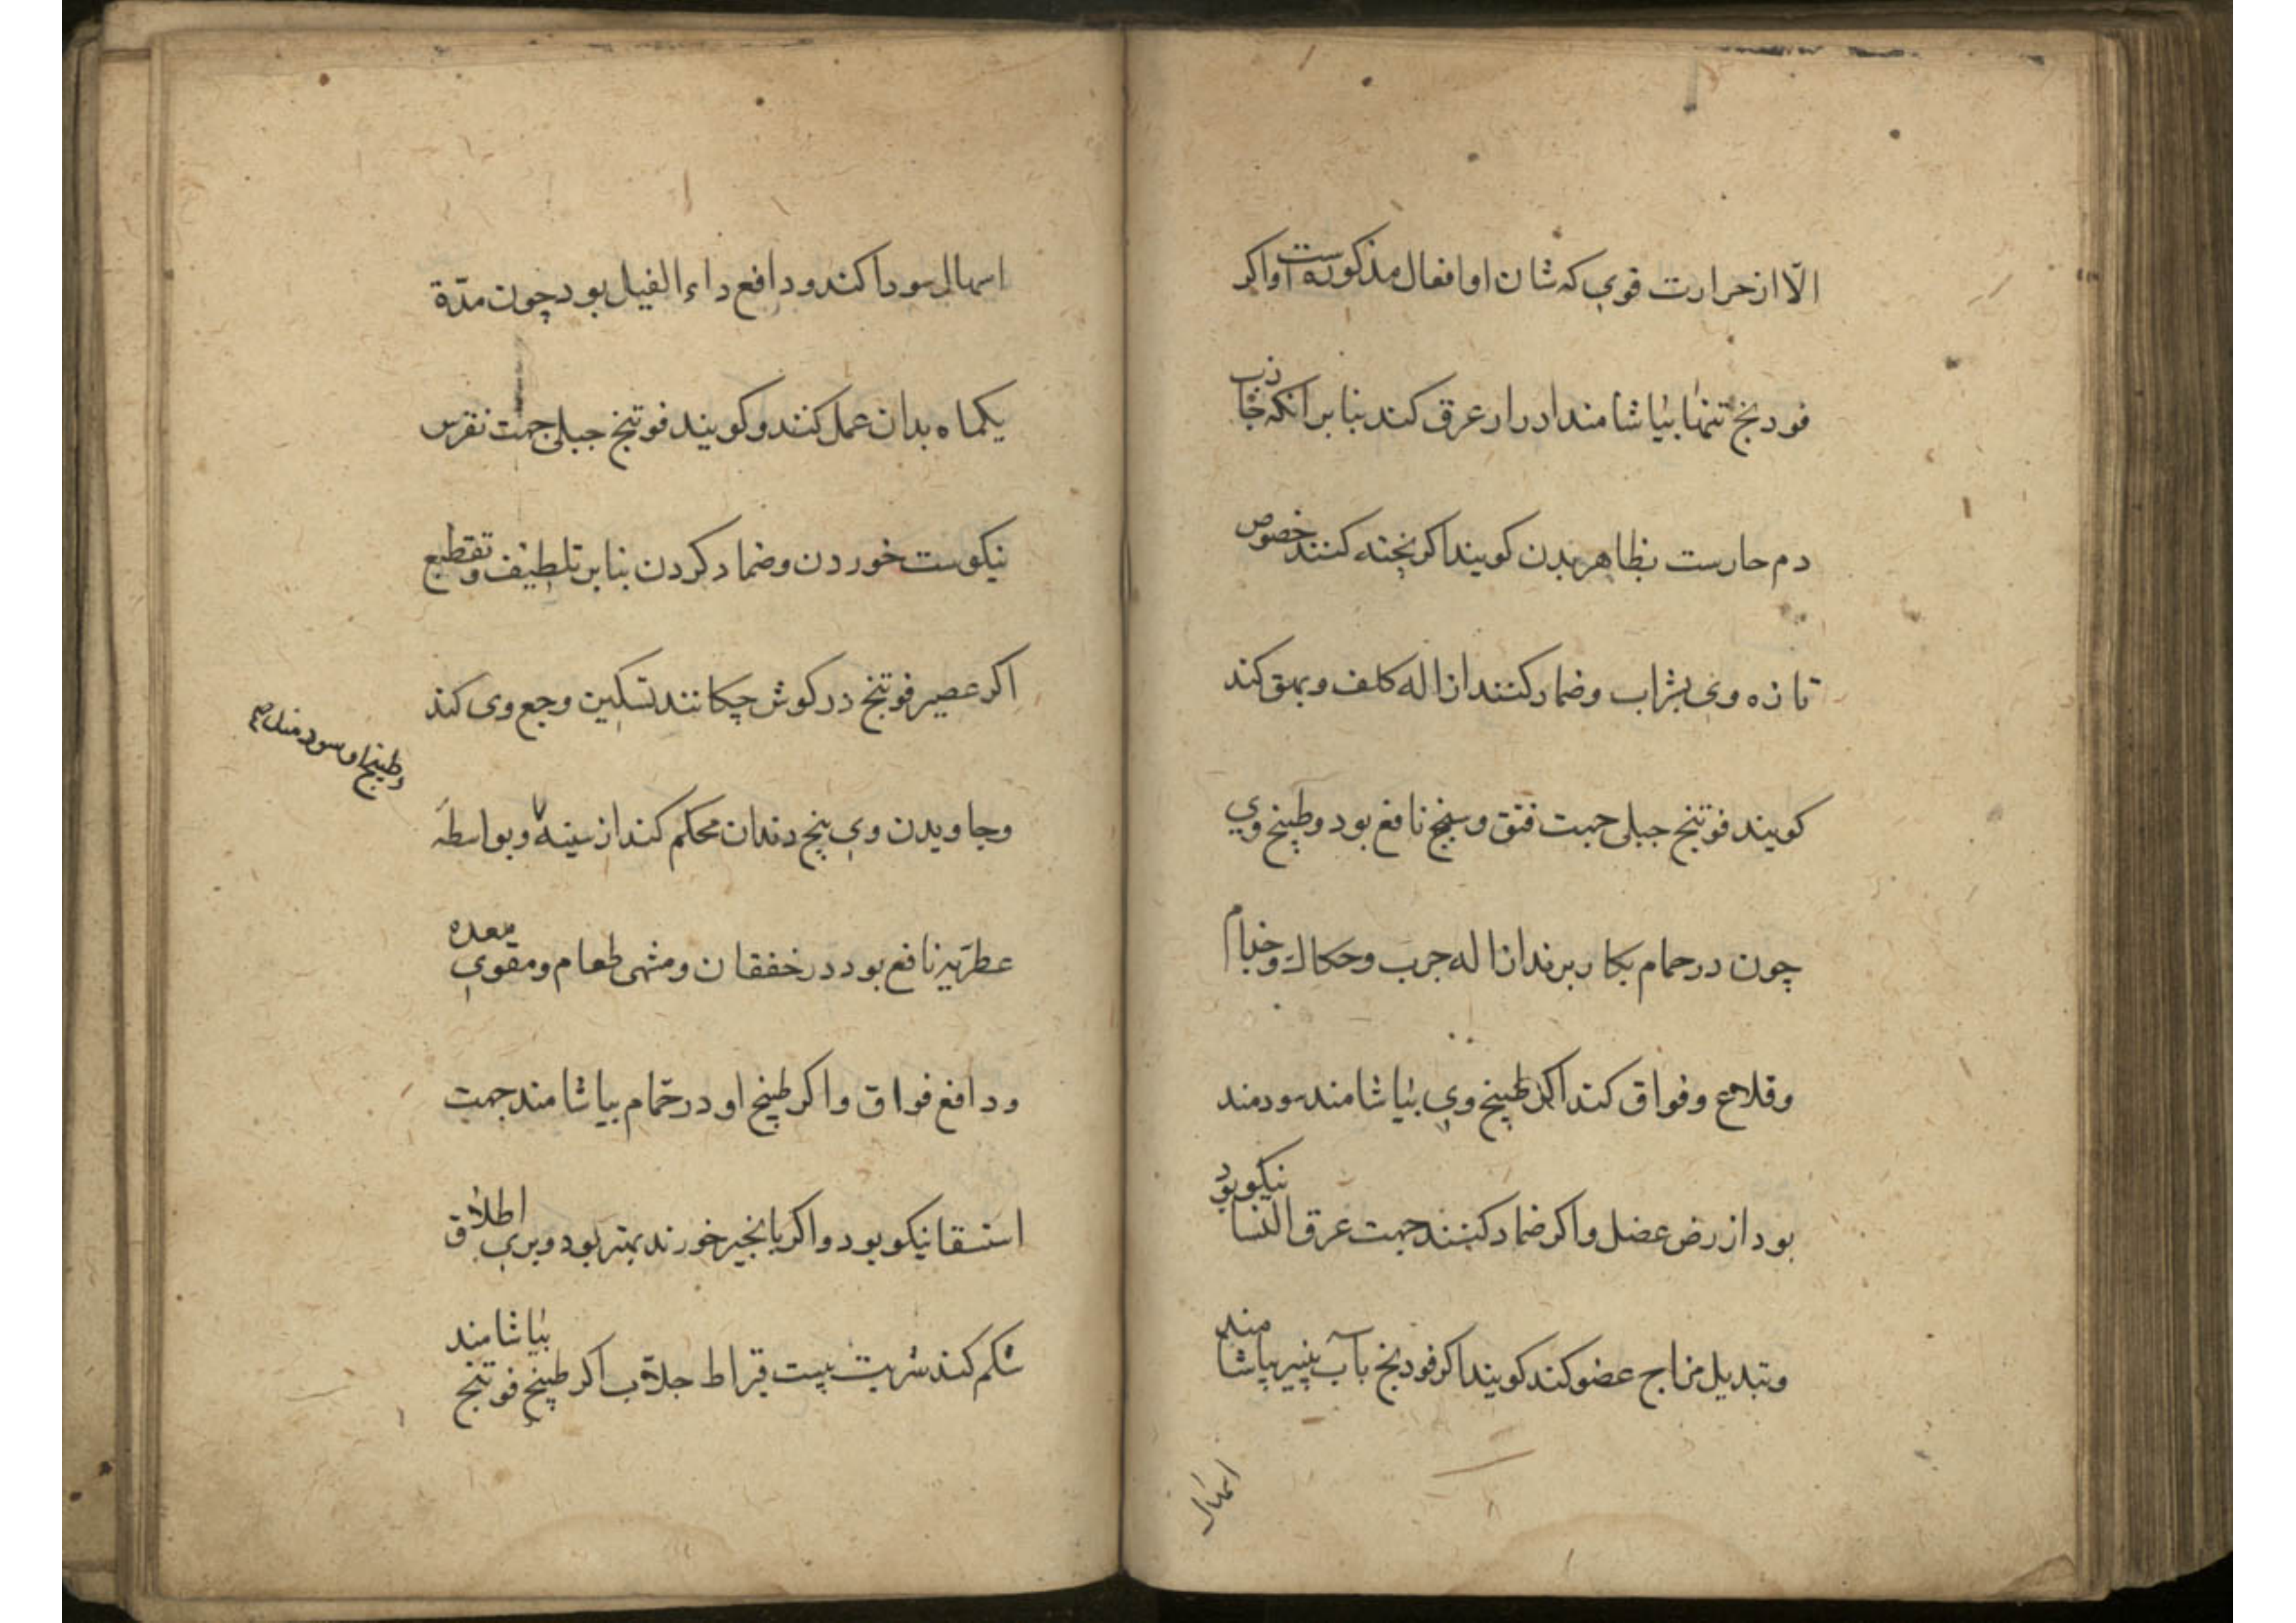 الّا از حرارت قوي که شان او افعال مذکورست و اکر
فودنج تنها بیاشامند ادرار عرق کند بنا بر انکه جاذب
دم حارست بظاهر بدن کویند اکر پخته کنند خصوص
تازه وی بشراب و ضماد کنند ازاله کلف و بهق کند
کویند فوتنج جبلی جهت فتق و سنج نافع بود و طبیخ وي
چون در حمام بکار برند ازاله جرب و حکاك و جذام
و قلاع و فواق کند اکر طبیخ وي بیاشامند سودمند
بود از رض عضل و اکر ضماد کنند جهت عرق النسا نیکو بود
و تبدیل مزاج عضو کند کویند اکر فودنج با آب پنیر بیاشامند
اسهال
اسهال سودا کند و دافع داء الفیل بود چون مدّة
یکماه بدان عمل کنند و کویند فوتنج جبلی جهت نقرس
نیکوست خوردن و ضماد کردن بنا بر تلطیف و تقطیع
اکر عصیر فوتنج در کوش چکانند تسکین وجع وی کند
و جاویدن وي بیخ دندان محکم کند از سینه و بواسطهٔ
و طبیخ او سودمند
عطریّه نافع بود در خفقان و مشهی طعام و مقوي معده
و دافع فواق و اکر طبیخ او در حمّام بیاشامند جهت
استسقا نیکو بود و اکر با انجیر خورند بهتر بود وبري اطلاق
شکم کند شربت بیست قیراط جلاّب اکر طبیخ فوتنج بیاشامند